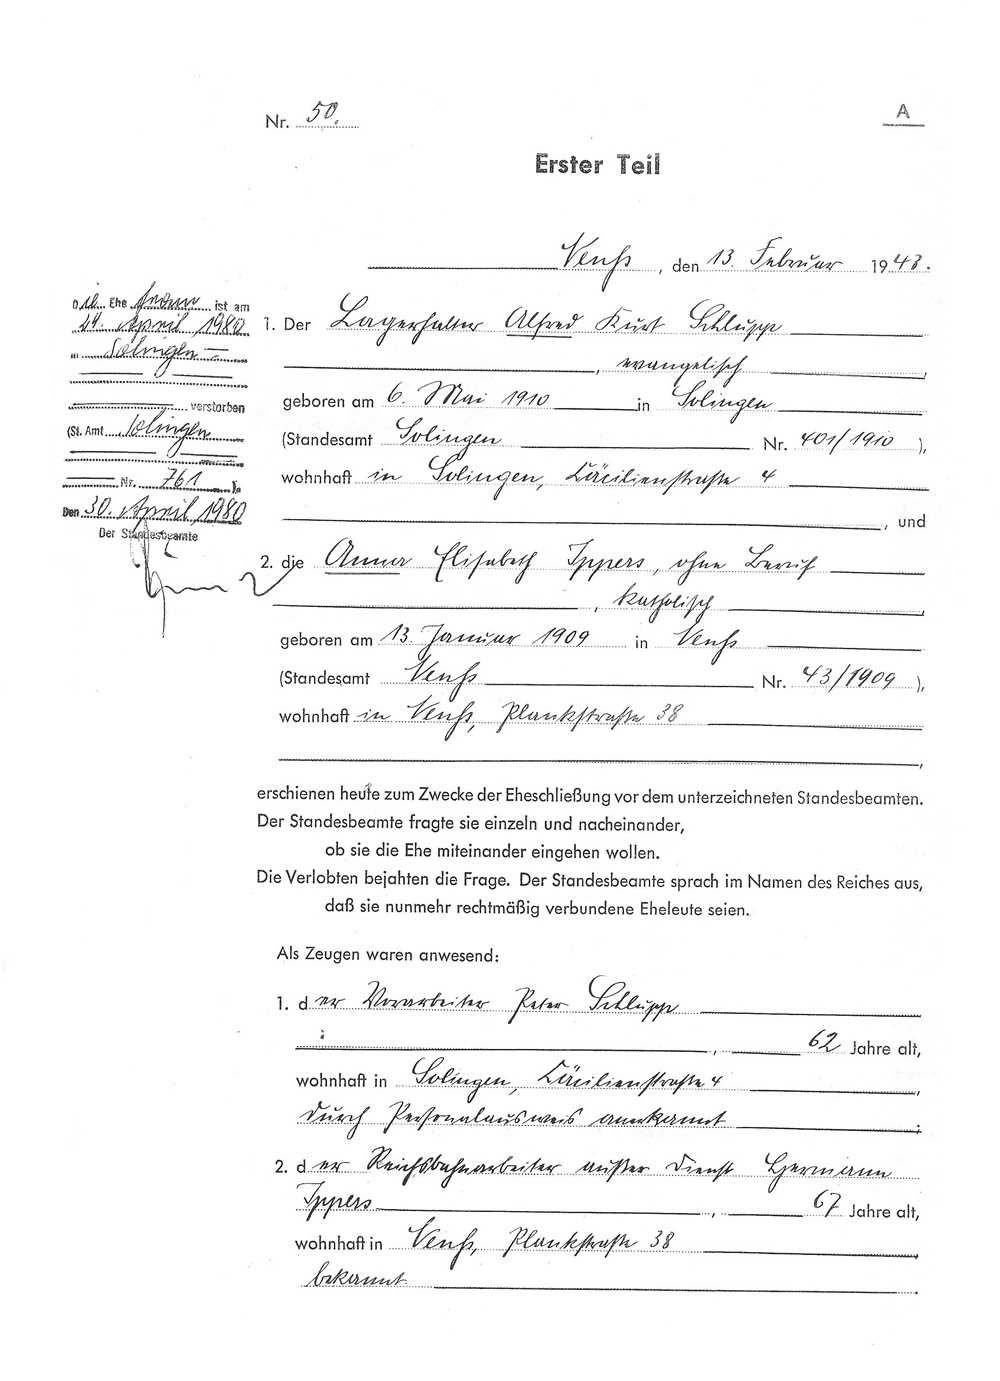 Nr. 50.
A
Erster Teil
Neuß, den 13. Februar 1943.
1. Der Lagerhalter Alfred Kurt Schlupp
, evangelisch
geboren am 6. Mai 1910 in Solingen
(Standesamt Solingen Nr. 401/1910 ),
wohnhaft in Solingen, Cäcilienstraße 4
, und
2. die Anna Elisabeth Ippers, ohne Beruf
, katholisch
geboren am 13. Januar 1909 in Neuß
(Standesamt Neuß Nr. 43/1909 ),
wohnhaft in Neuß, Plankstraße 38
,
erschienen heute zum Zwecke der Eheschließung vor dem unterzeichneten Standesbeamten.
Der Standesbeamte fragte sie einzeln und nacheinander,
ob sie die Ehe miteinander eingehen wollen.
Die Verlobten bejahten die Frage. Der Standesbeamte sprach im Namen des Reiches aus,
daß sie nunmehr rechtmäßig verbundene Eheleute seien.
Als Zeugen waren anwesend:
1. der Vorarbeiter Peter Schlupp
, 62 Jahre alt,
wohnhaft in Solingen, Cäcilienstraße 4,
durch Personalausweis anerkannt ;
2. der Reichsbahnarbeiter außer Dienst Hermann
Ippers , 67 Jahre alt,
wohnhaft in Neuß, Plankstraße 38
bekannt .
Ehe frau ist am
24. April 1980
in Solingen
verstorben
(St. Amt Solingen
Nr. 761 ).
Den 30. April 1980
Der Standesbeamte